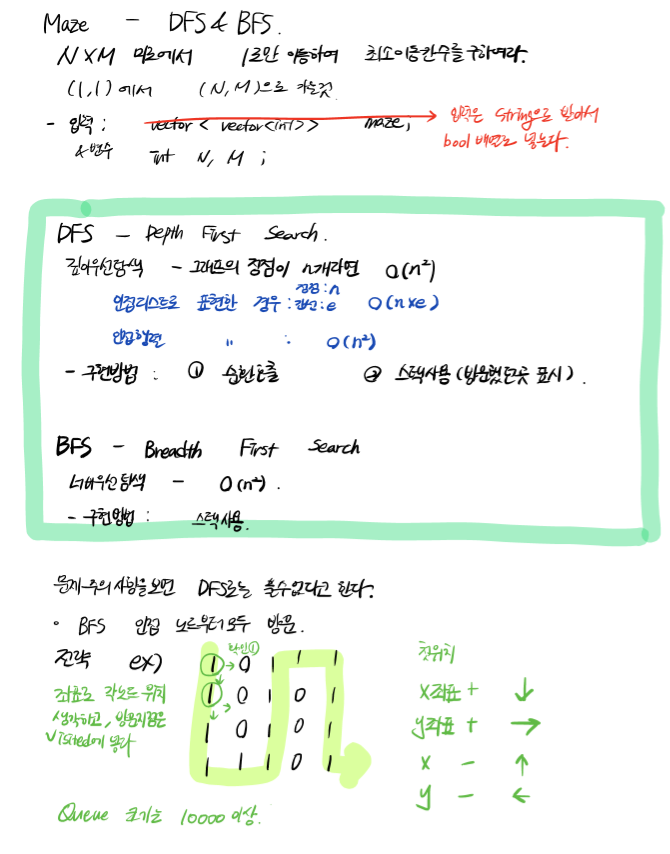 Maze - DFS & BFS.
N×M 미로에서 1로만 이동하여 최소이동칸수를 구하여라.
(1,1)에서 (N,M)으로 가는것.
- 입력 : vector < vector<int>> maze; → 입력은 string으로 받아서
& 변수 int N, M ; bool 배열로 넣는다.
DFS - Depth First Search.
깊이우선탐색 - 그래프의 정점이 n개라면 O(n²)
인접리스트로 표현한 경우 : 정점:n 간선:e O(n×e)
인접행렬 〃 : O(n²)
- 구현방법 : ① 순환호출 ② 스택사용 (방문했던곳 표시).
BFS - Breadth First Search
너비우선탐색 - O(n²).
- 구현방법 : 스택사용.
문제-주의사항을보면 DFS로는 풀수없다고 한다.
• BFS 인접 노드부터모두 방문.
전략 ex) 확인①
1 → 0 1 1 1
1 0 1 0 1
1 0 1 0 1
1 1 1 0 1
좌표로 각노드 위치
생각하고, 방문지점은
visited에 넣다
첫위치
x좌표 + ↓
y좌표 + →
x - ↑
y - ←
Queue 크기는 10000 이상.